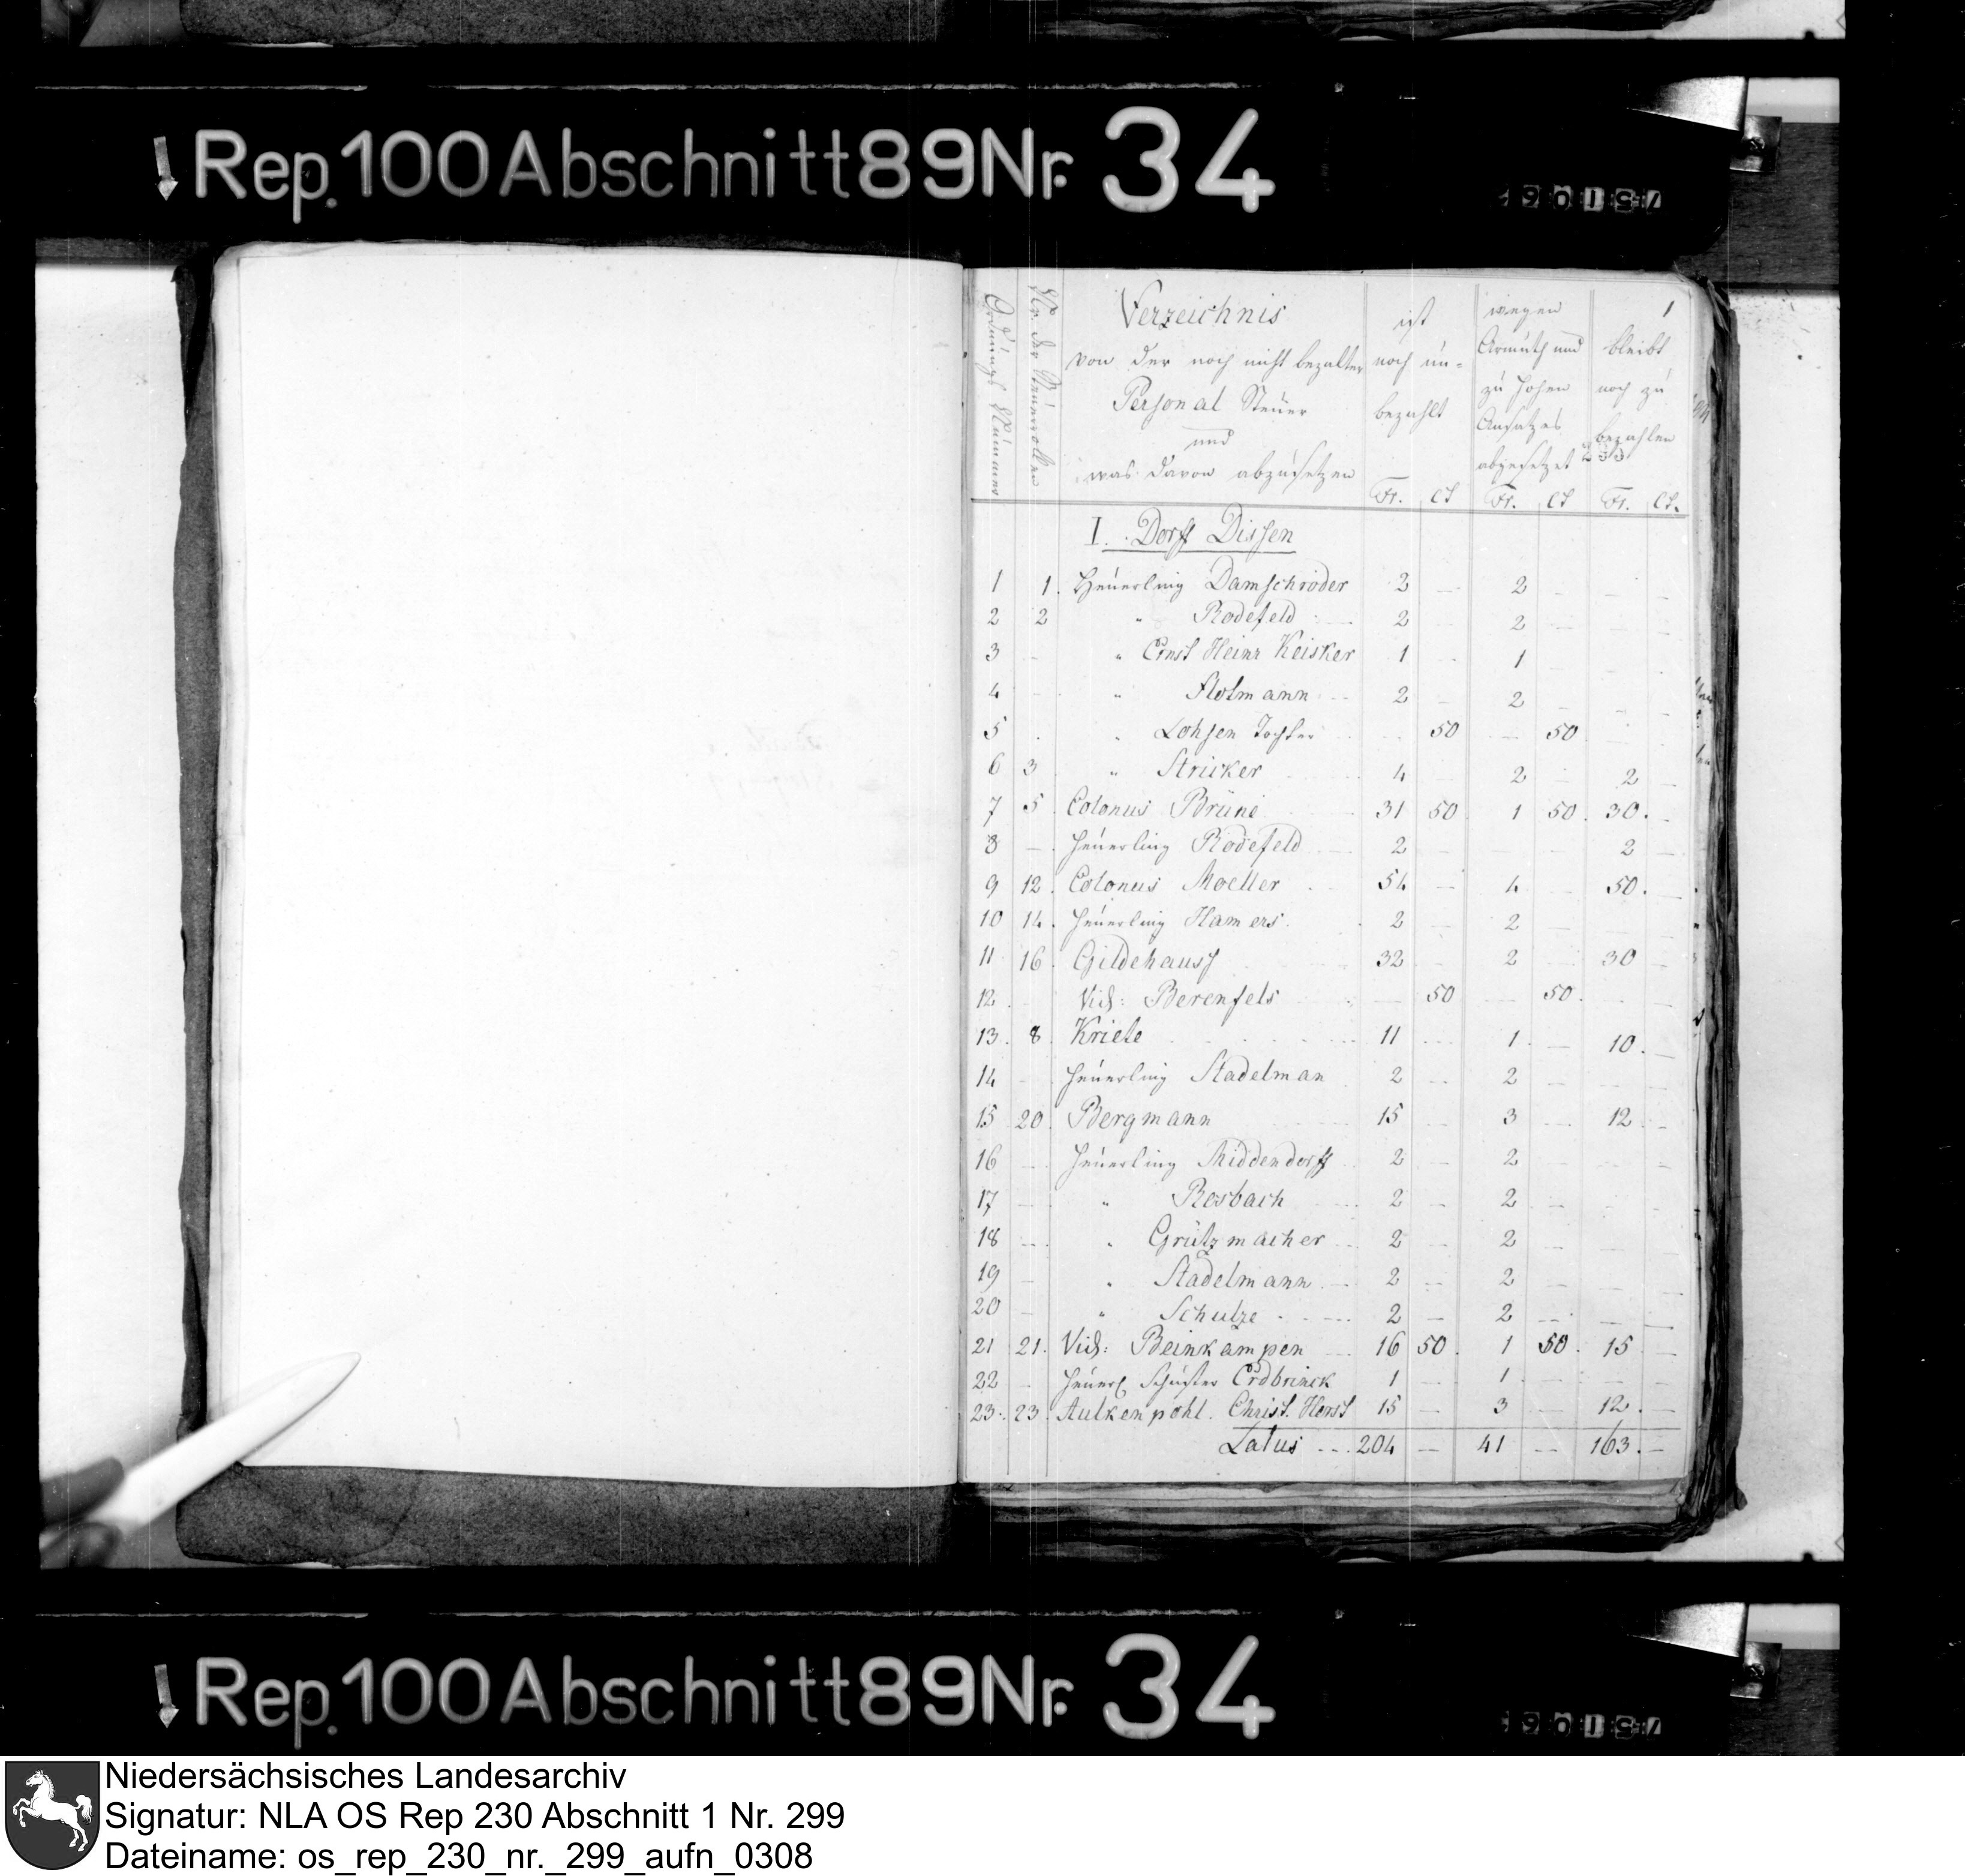 Rep. 100 Abschnitt 89 Nr. 34
Ordnungs Nummer
Nr. der Steuerrollen
Verzeichnis
von der noch nicht bezalten
Personal Steuer
und
was davon abzusetzen
ist
noch un-
bezahlt
Fr. Ct
wegen
Armuth und
zu hohen
Ansatzes
abgesetzet
Fr. Ct
1
bleibt
noch zu
bezahlen
233
Fr. Ct.
I. Dorf Dissen
1 1. Heuerling Damschröder 2 — 2 — — —
2 2 " Rodefeld 2 — 2 — — —
3 — " Ernst Heinr Keisker 1 — 1 — — —
4 — " Holmann 2 — 2 — — —
5 " Lohsen Tochter — 50 — 50 — —
6 3 " Stricker 4 — 2 — 2 —
7 5 Colonus Brüne 31 50 1 50. 30. —
8 — Heuerling Rodefeld 2 — — — 2 —
9 12. Colonus Moeller 54 — 4 — 50. —
10 14. Heuerling Hamers 2 — 2 — — —
11 16. Gildehaus 32 — 2 — 30 —
12 — Vid: Berenfels — 50 — 50. — —
13. 8. Kriete 11 — 1. — 10. —
14 — Heuerling Stadelman 2 — 2 — — —
15 20. Bergmann 15 — 3 — 12. —
16 — Heuerling Middendorff 2 — 2 — — —
17 — " Rosbach 2 — 2 — — —
18 — " Grützmacher 2 — 2 — — —
19 — " Stadelmann 2 — 2 — — —
20 — " Schulze 2 — 2 — — —
21 21. Vid: Beinkampen 16 50. 1 50. 15 —
22 — Heuerl Schuster Erdbrinck 1 — 1 — — —
23. 23. Aulkenpohl. Christ. Horst 15 — 3 — 12. —
Latus 204 — 41 — 163. —
Rep. 100 Abschnitt 89 Nr. 34
Niedersächsisches Landesarchiv
Signatur: NLA OS Rep 230 Abschnitt 1 Nr. 299
Dateiname: os_rep_230_nr._299_aufn_0308